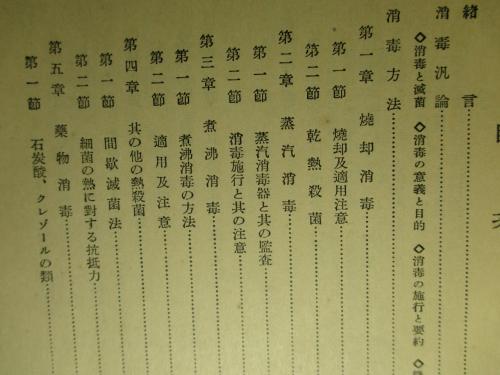 緒言
消毒汎論
◇消毒と滅菌 ◇消毒の意義と目的 ◇消毒の施行と要約 ◇
消毒方法
第一章 燒却消毒
第一節 燒却及適用注意
第二節 乾熱殺菌
第二章 蒸汽消毒
第一節 蒸汽消毒器と其の監査
第二節 消毒施行と其の注意
第三章 煮沸消毒
第一節 煮沸消毒の方法
第二節 適用及注意
第四章 其の他の熱殺菌
第一節 間歇滅菌法
第二節 細菌の熱に對する抗抵力
第五章 藥物消毒
第一節 石炭酸、クレゾールの類